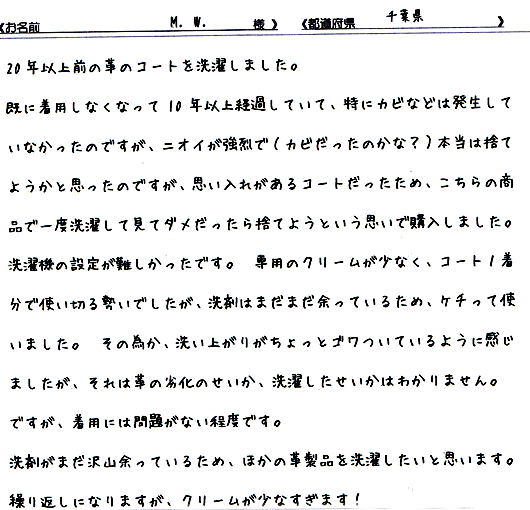 《お名前 M. W. 様 》 《都道府県 千葉県 》
20年以上前の革のコートを洗濯しました。
既に着用しなくなって10年以上経過していて、特にカビなどは発生して
いなかったのですが、ニオイが強烈で(カビだったのかな?)本当は捨て
ようかと思ったのですが、思い入れがあるコートだったため、こちらの商
品で一度洗濯して見てダメだったら捨てようという思いで購入しました。
洗濯機の設定が難しかったです。 専用のクリームが少なく、コート1着
分で使い切る勢いでしたが、洗剤はまだまだ余っているため、ケチって使
いました。 その為か、洗い上がりがちょっとゴワついているように感じ
ましたが、それは革の劣化のせいか、洗濯したせいかはわかりません。
ですが、着用には問題がない程度です。
洗剤がまだ沢山余っているため、ほかの革製品を洗濯したいと思います。
繰り返しになりますが、クリームが少なすぎます!